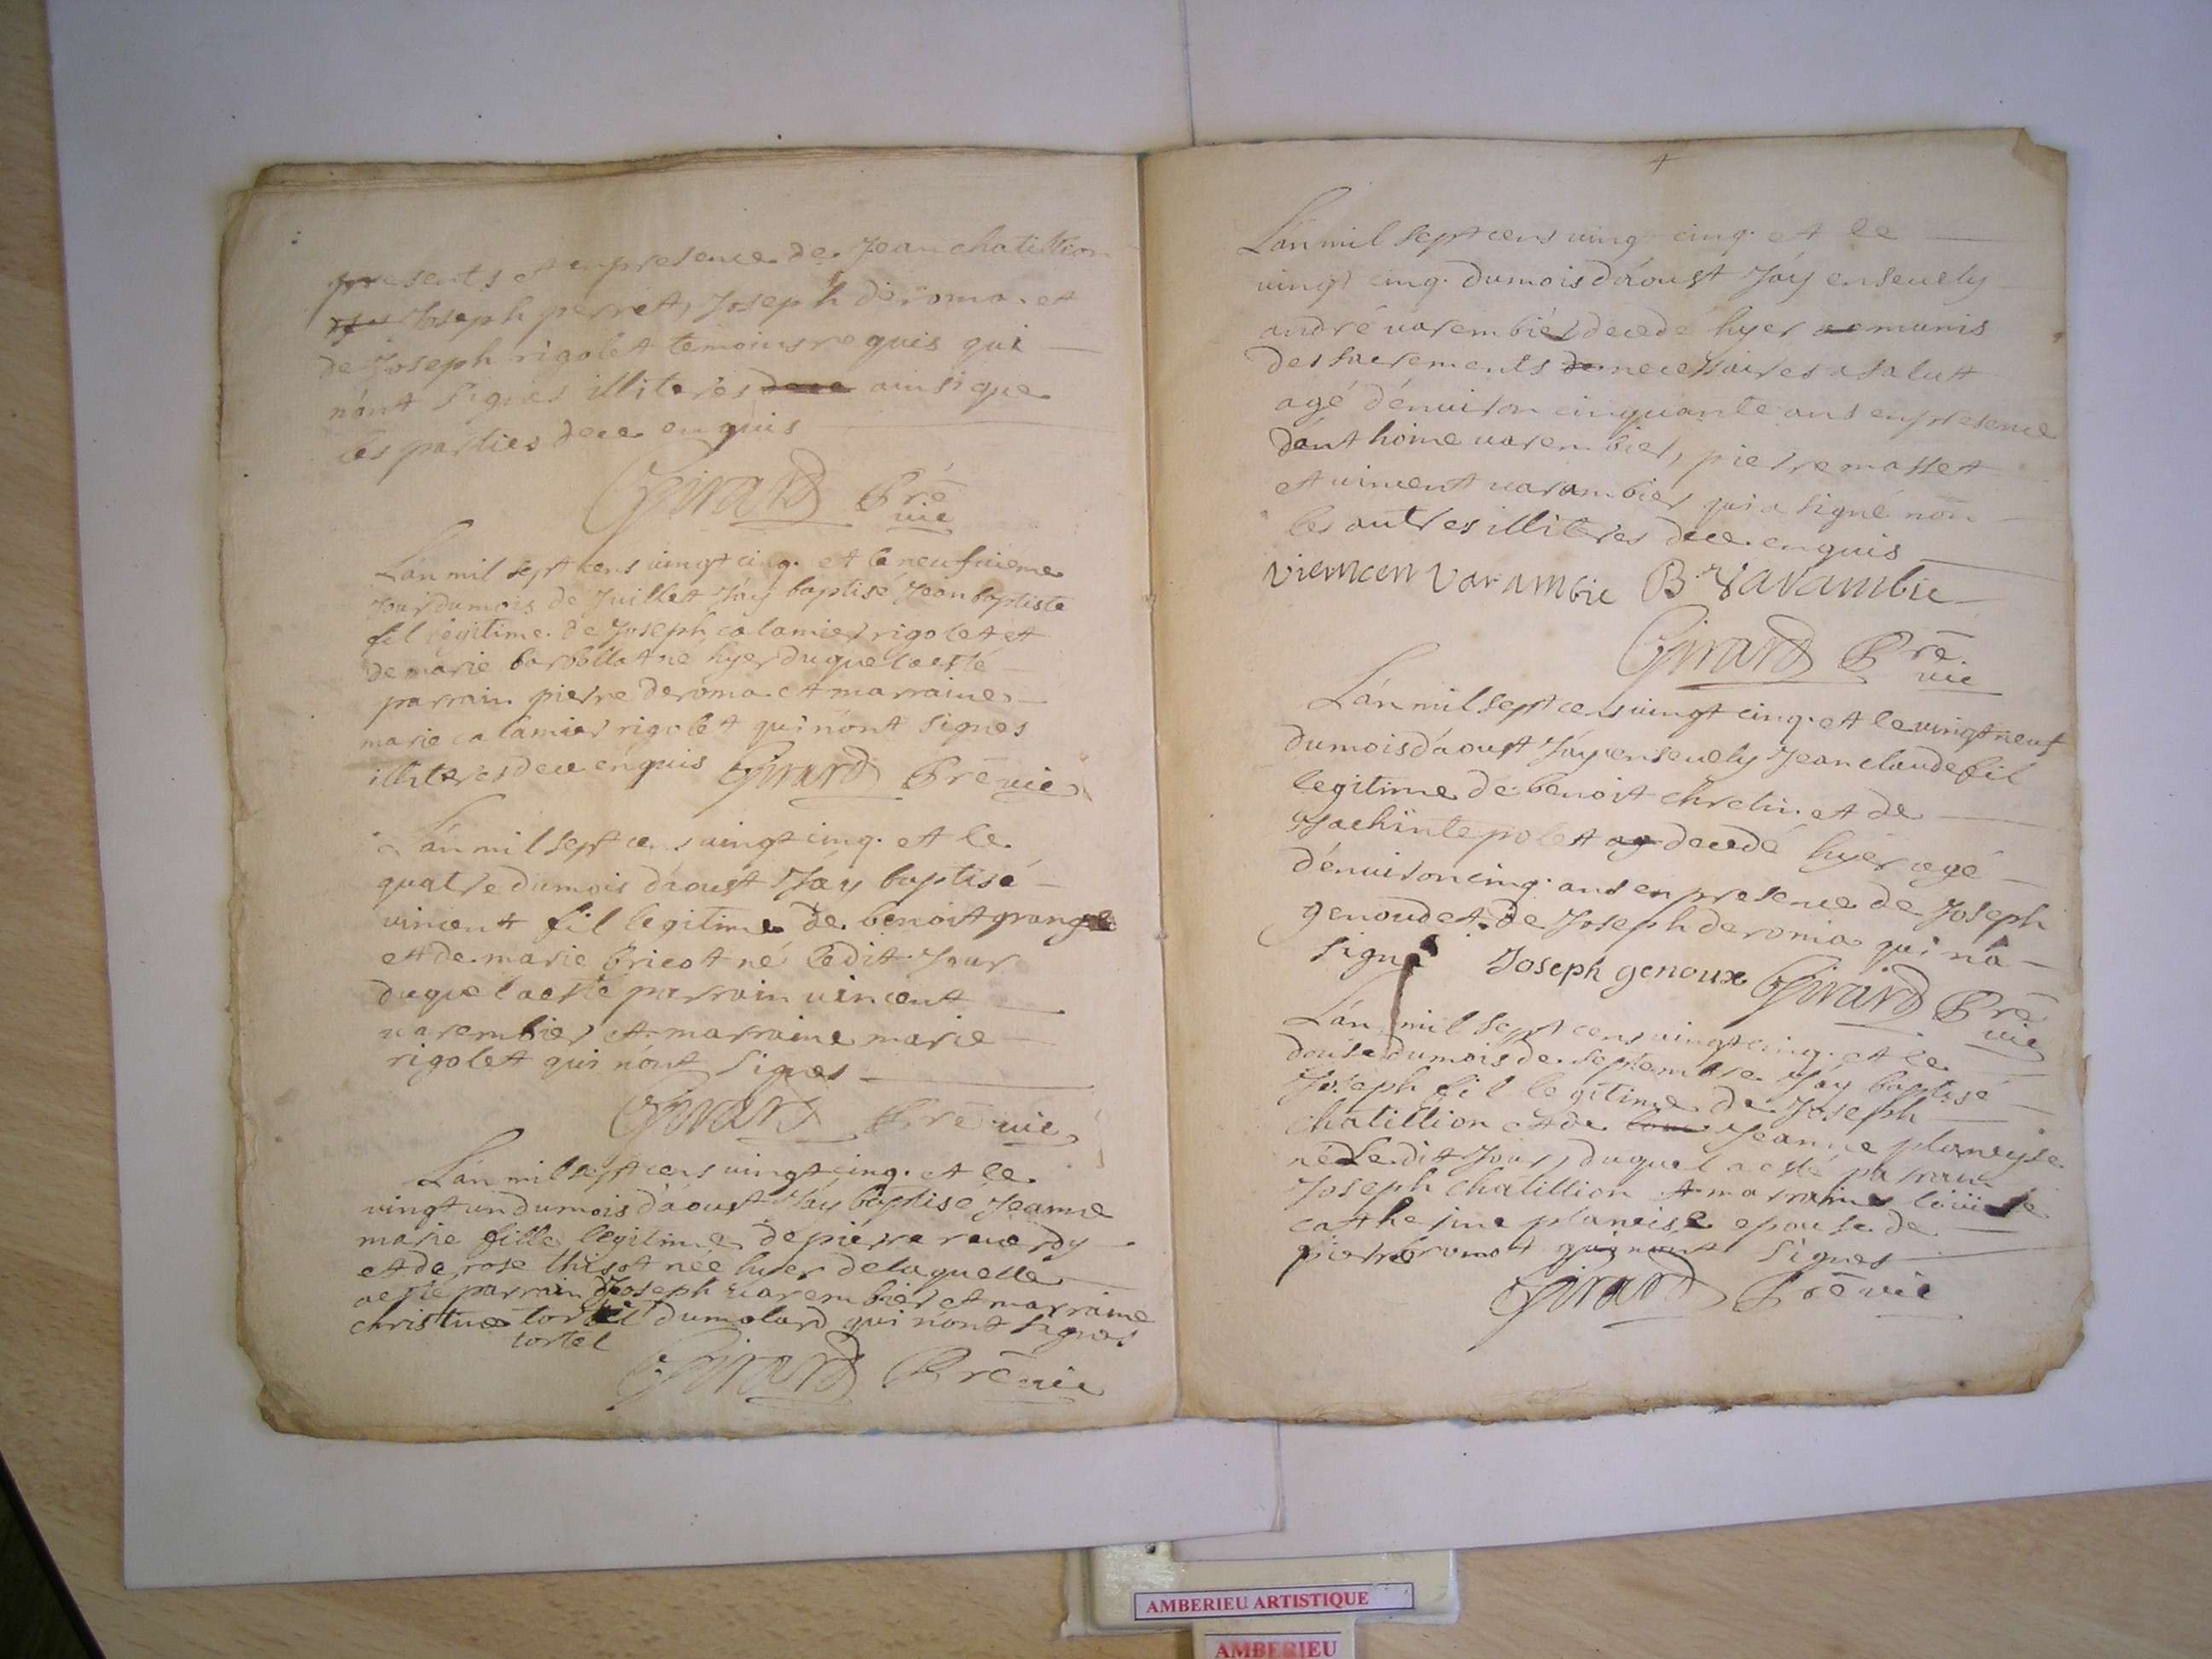 presents et en presence de Jean chatillion
Joseph perret, Joseph deroma et
de Joseph rigolet temoins requis qui
n'ont signés illiteres ainsi que
les parties de ce enquis
Girard Prē
vic
L'an mil sept cens vingt cinq. et le neufvieme
Jour du mois de Juillet J'ay baptisé Jean baptiste
fil legitime de Joseph calamier rigolet et
de marie barbollat né hyer duquel a esté
parrain pierre deroma et marraine
marie calamier rigolet qui n'ont signes
illiteres de ce enquis Girard Prē vic
L'an mil sept cens vingt cinq. et le
quatre du mois d'aoust J'ay baptisé
vincent fil legitime de benoist grange
et de marie bricot né ledit Jour
duquel a esté parrain vincent
varembier et marraine marie
rigolet qui n'ont signes
Girard Prē vic
L'an mil sept cens vingt cinq. et le
vingt un du mois d'aoust J'ay baptisé Jeanne
marie fille legitime de pierre reverdy
et de rose thisot née hyer de laquelle
a esté parrain Joseph varembier et marraine
christine tortel dumolard qui n'ont signes
tortel
Girard Prē vic
L'an mil sept cens vingt cinq. et le
vingt cinq. du mois d'aoust J'ay ensevely
andré varembier decedé hyer munis
des sacrements necessaires a salut
agé d'environ cinquante ans en presence
d'anthoine varembier, pierre masset
et vincent varambier qui a signé non
les autres illiteres de ce enquis
viencen varambie B. Varambie
Girard Prē.
vic
L'an mil sept cens vingt cinq. et le vingt neuf
du mois d'aoust J'ay ensevely Jean claude fil
legitime de benoit chretin et de
Jachinte polet ag decedé hyer agé
d'environ cinq. ans en presence de Joseph
genoud et de Joseph deroma qui n'a
signé Joseph genoux Girard Prē
vic
L'an mil sept cens vingt cinq. et le
douse du mois de septembre J'ay baptisé
Joseph fil legitime de Joseph
chatillion et de Jeanne planeyse
né Ledit Jour, duquel a esté parrain
Joseph chatillion et marraine loüise
catherine planeise epouse de
pierre bromot qui n'ont signes
Girard Prē vic
AMBERIEU ARTISTIQUE
AMBERIEU